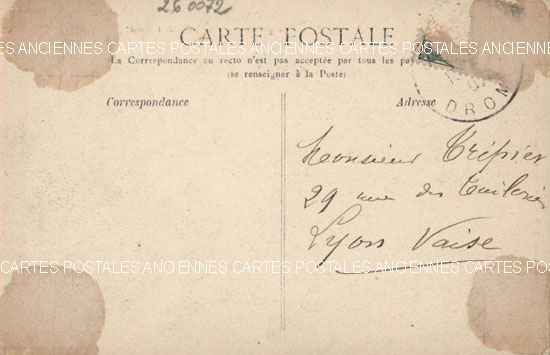 260072
CARTE POSTALE
ANCIENNES CARTES POSTALES ANCIENNES CARTES POSTALES ANCIENNES CARTES POSTALES
La Correspondance au recto n'est pas acceptée par tous les pay
(se renseigner à la Poste)
DROM
Correspondance
Adresse
Monsieur Trépier
29 rue des Tuileries
Lyon Vaise
CARTES POSTALES ANCIENNES CARTES POSTALES ANCIENNES CARTES POSTALES ANCIENNES CARTES POS